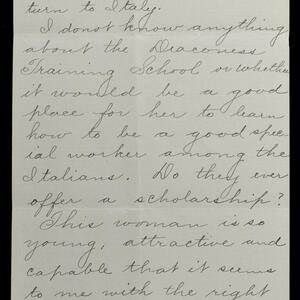 turn to Italy.
I donot know anything
about the Deaconess
Training School or whether
it would be a good
place for her to learn
how to be a good spec
ial worker among the
Italians. Do they ever
offer a scholarship?
This woman is so
young, attractive and
capable that it seems
to me with the right